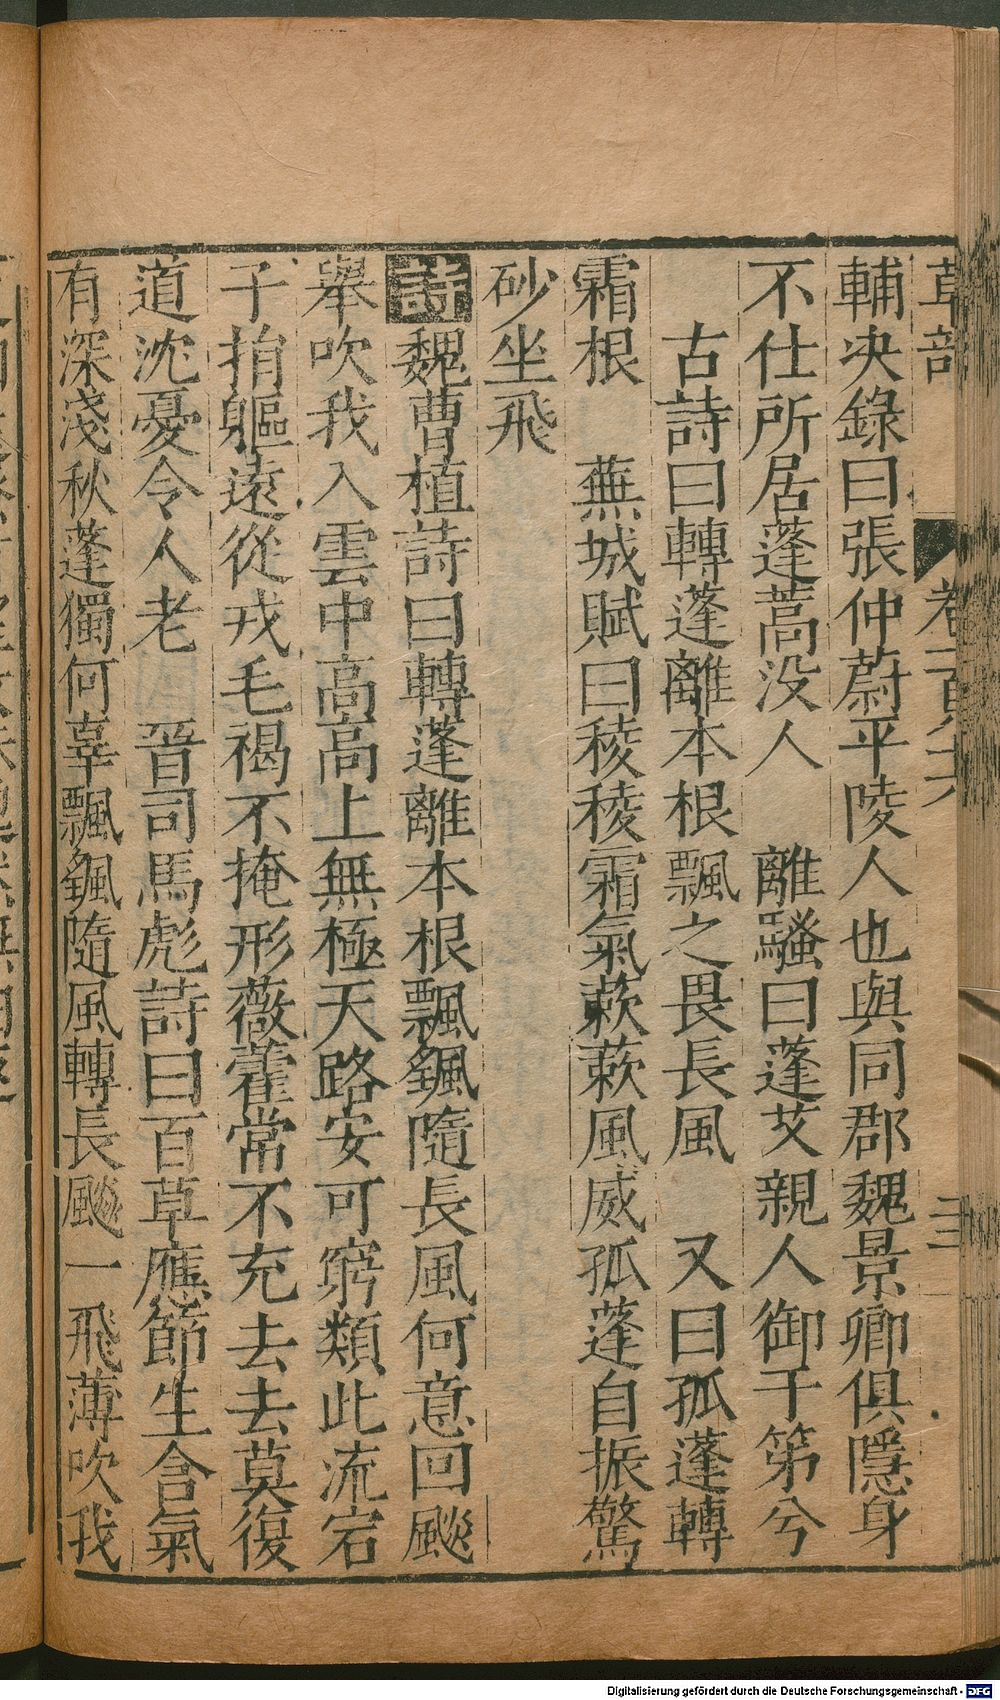 草部 卷一百八十六 三
輔决錄曰張仲蔚平陵人也與同郡魏景卿俱隱身
不仕所居蓬蒿没人 離騷曰蓬艾親人御于第兮
古詩曰轉蓬離本根飄之畏長風 又曰孤蓬轉
霜根 蕪城賦曰稜稜霜氣蔌蔌風威孤蓬自振驚
砂坐飛
詩魏曹植詩曰轉蓬離本根飄颻隨長風何意回飈
舉吹我入雲中高高上無極天路安可窮類此流宕
子捐軀遠從戎毛褐不掩形薇藿常不充去去莫復
道沈憂令人老 晉司馬彪詩曰百草應節生含氣
有深淺秋蓬獨何辜飄颻隨風轉長飈一飛薄吹我
Digitalisierung gefördert durch die Deutsche Forschungsgemeinschaft - DFG